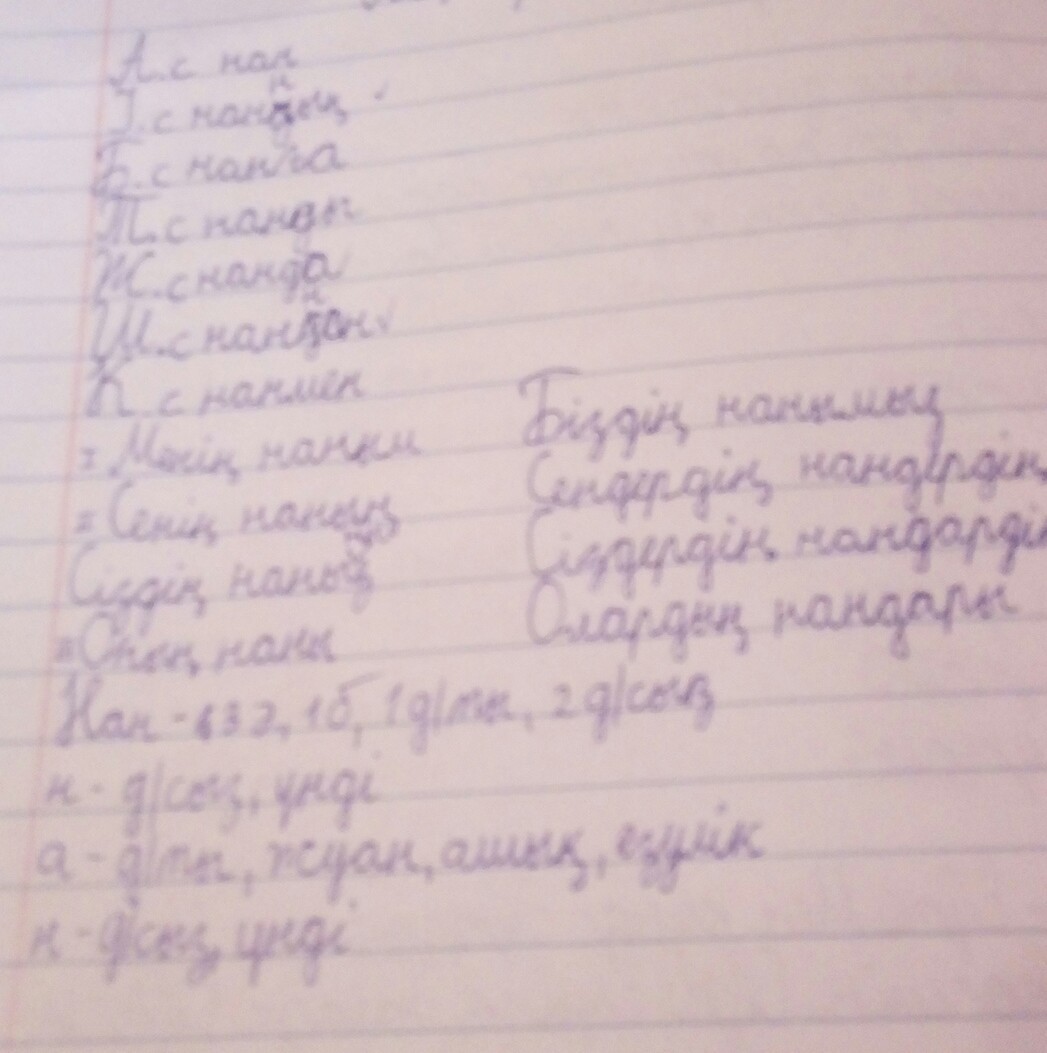 А.с нан
І.с нанның
Б.с нанға
Т.с нанды
Ж.с нанда
Ш.с наннан
К.с нанмен
= Менің наным
= Сенің наның
Сіздің наныңыз
= Оның наны
Біздің нанымыз
Сендердің нандердің
Сіздердің нандарді
Олардың нандары
Нан - 3 ә, 1 б, 1 д/ты, 2 д/сыз
н - д/сыз, үнді
а - д/ты, жуан, ашық, езулік
н - д/сыз, үнді